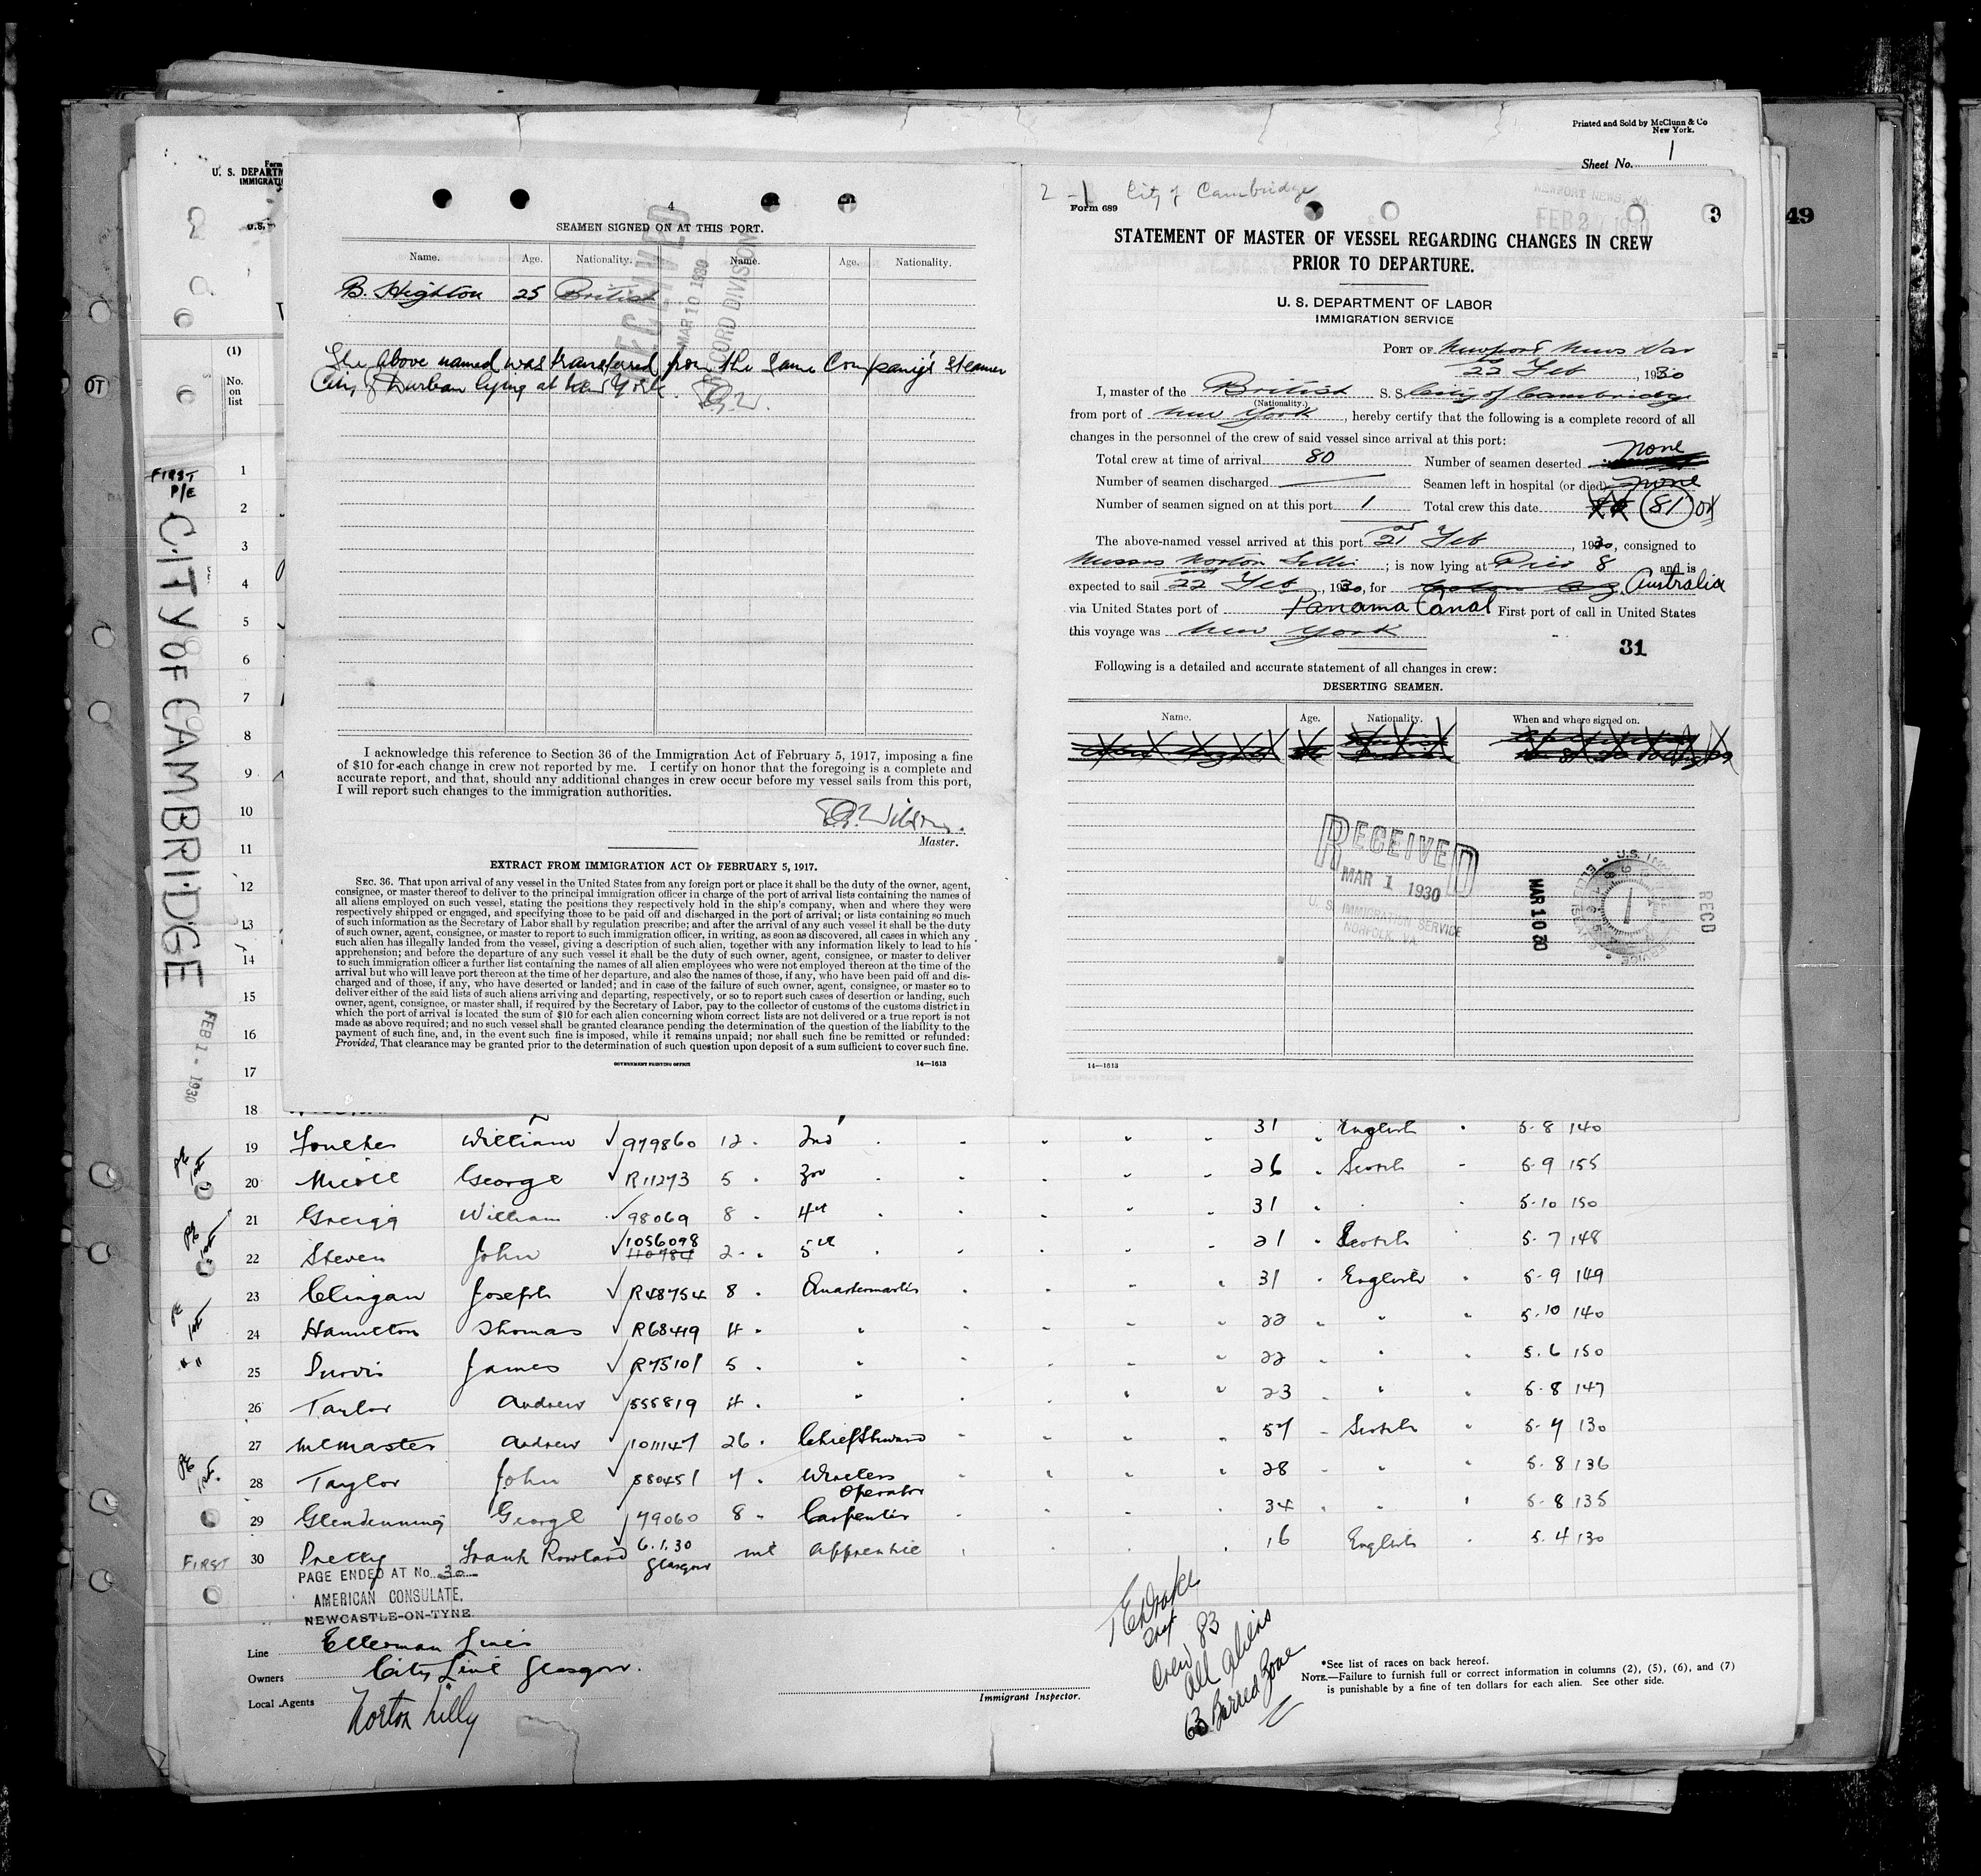 Printed and Sold by McClunn & Co
New York.
Sheet No. 1
Form
U. S. DEPARTM
IMMIGRATI
U.S.
(1)
No.
on
list
OT
49
FIRST
P/E
CITY OF CAMBRIDGE
FEB 1 - 1930
1
2
3
4
5
6
7
8
9
10
11
12
13
14
15
16
17
18
4
SEAMEN SIGNED ON AT THIS PORT.
Name. Age. Nationality. Name. Age. Nationality.
B. Highton 25 British
RECEIVED
MAR 10 1930
RECORD DIVISION
The above named was transferred from the same Company's steamer
City of Durban lying at New York.
I acknowledge this reference to Section 36 of the Immigration Act of February 5, 1917, imposing a fine
of $10 for each change in crew not reported by me. I certify on honor that the foregoing is a complete and
accurate report, and that, should any additional changes in crew occur before my vessel sails from this port,
I will report such changes to the immigration authorities.
Wilson.
Master.
EXTRACT FROM IMMIGRATION ACT OF FEBRUARY 5, 1917.
SEC. 36. That upon arrival of any vessel in the United States from any foreign port or place it shall be the duty of the owner, agent,
consignee, or master thereof to deliver to the principal immigration officer in charge of the port of arrival lists containing the names of
all aliens employed on such vessel, stating the positions they respectively hold in the ship's company, when and where they were
respectively shipped or engaged, and specifying those to be paid off and discharged in the port of arrival; or lists containing so much
of such information as the Secretary of Labor shall by regulation prescribe; and after the arrival of any such vessel it shall be the duty
of such owner, agent, consignee, or master to report to such immigration officer, in writing, as soon as discovered, all cases in which any
such alien has illegally landed from the vessel, giving a description of such alien, together with any information likely to lead to his
apprehension; and before the departure of any such vessel it shall be the duty of such owner, agent, consignee, or master to deliver
to such immigration officer a further list containing the names of all alien employees who were not employed thereon at the time of the
arrival but who will leave port thereon at the time of her departure, and also the names of those, if any, who have been paid off and dis-
charged and of those, if any, who have deserted or landed; and in case of the failure of such owner, agent, consignee, or master so to
deliver either of the said lists of such aliens arriving and departing, respectively, or so to report such cases of desertion or landing, such
owner, agent, consignee, or master shall, if required by the Secretary of Labor, pay to the collector of customs of the customs district in
which the port of arrival is located the sum of $10 for each alien concerning whom correct lists are not delivered or a true report is not
made as above required; and no such vessel shall be granted clearance pending the determination of the question of the liability to the
payment of such fine, and, in the event such fine is imposed, while it remains unpaid; nor shall such fine be remitted or refunded:
Provided, That clearance may be granted prior to the determination of such question upon deposit of a sum sufficient to cover such fine.
GOVERNMENT PRINTING OFFICE 14—1613
2 - 1 City of Cambridge
Form 689
NEWPORT NEWS, VA.
FEB 2 1930
3
STATEMENT OF MASTER OF VESSEL REGARDING CHANGES IN CREW
PRIOR TO DEPARTURE.
U. S. DEPARTMENT OF LABOR
IMMIGRATION SERVICE
PORT OF Newport News Var
22 Feb, 1930
I, master of the British S. S. City of Cambridge
(Nationality.)
from port of New York, hereby certify that the following is a complete record of all
changes in the personnel of the crew of said vessel since arrival at this port:
Total crew at time of arrival 80 Number of seamen deserted none
Number of seamen discharged Seamen left in hospital (or died) none
Number of seamen signed on at this port 1 Total crew this date 81 OK
The above-named vessel arrived at this port 21 Feb, 1930, consigned to
Messrs Norton Lillie; is now lying at Pier 8 and is
expected to sail 22nd Feb, 1930, for Australia
via United States port of Panama Canal First port of call in United States
this voyage was New York
31
Following is a detailed and accurate statement of all changes in crew:
DESERTING SEAMEN.
Name. Age. Nationality. When and where signed on.
RECEIVED
MAR 1 1930
U. S. IMMIGRATION SERVICE
NORFOLK, VA.
MAR 10 30
RECD
14—1613
19 Foulkes William 979860 12 2nd 31 English 5-8 140
20 Nicoll George R11273 5 3rd 26 Scotch 5-9 155
21 Greigg William 98069 8 4th 31 5-10 150
22 Steven John 1056098 2 5th 21 Scotch 5-7 148
23 Clingan Joseph R48754 8 Quartermaster 31 English 5-9 149
24 Hamilton Thomas R68419 4 " 22 " 5-10 140
25 Purvis James R75101 5 " 22 " 5-6 150
26 Taylor Andrew 555819 4 " 23 " 5-8 147
27 McMaster Andrew 1011147 26 Chief Steward 57 Scotch 5-4 130
28 Taylor John 880451 7 Wireless 28 " 5-8 136
Operator
29 Glendenning George 79060 8 Carpenter 34 5-8 135
FIRST 30 Pretty Frank Rowland 6.1.30 nil apprentice 16 English 5-4 130
Glasgow
PAGE ENDED AT No. 30
AMERICAN CONSULATE,
NEWCASTLE-ON-TYNE.
Line Ellerman Lines
Owners City Line Glasgow.
Local Agents Norton Lilly
Immigrant Inspector.
TE Drake
Insp
Crew 83
all aliens
63 Barred Zone
*See list of races on back hereof.
NOTE.—Failure to furnish full or correct information in columns (2), (5), (6), and (7)
is punishable by a fine of ten dollars for each alien. See other side.